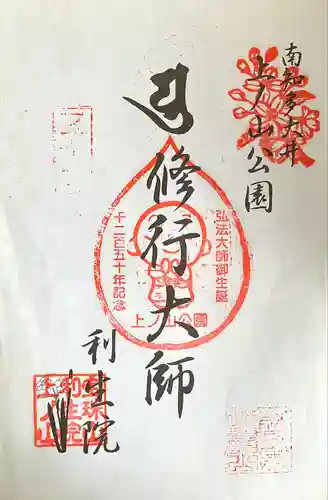 南知多大井
上ノ山公園
修行大師
弘法大師御生誕
千二百五十年記念
上ノ山公園
利生院